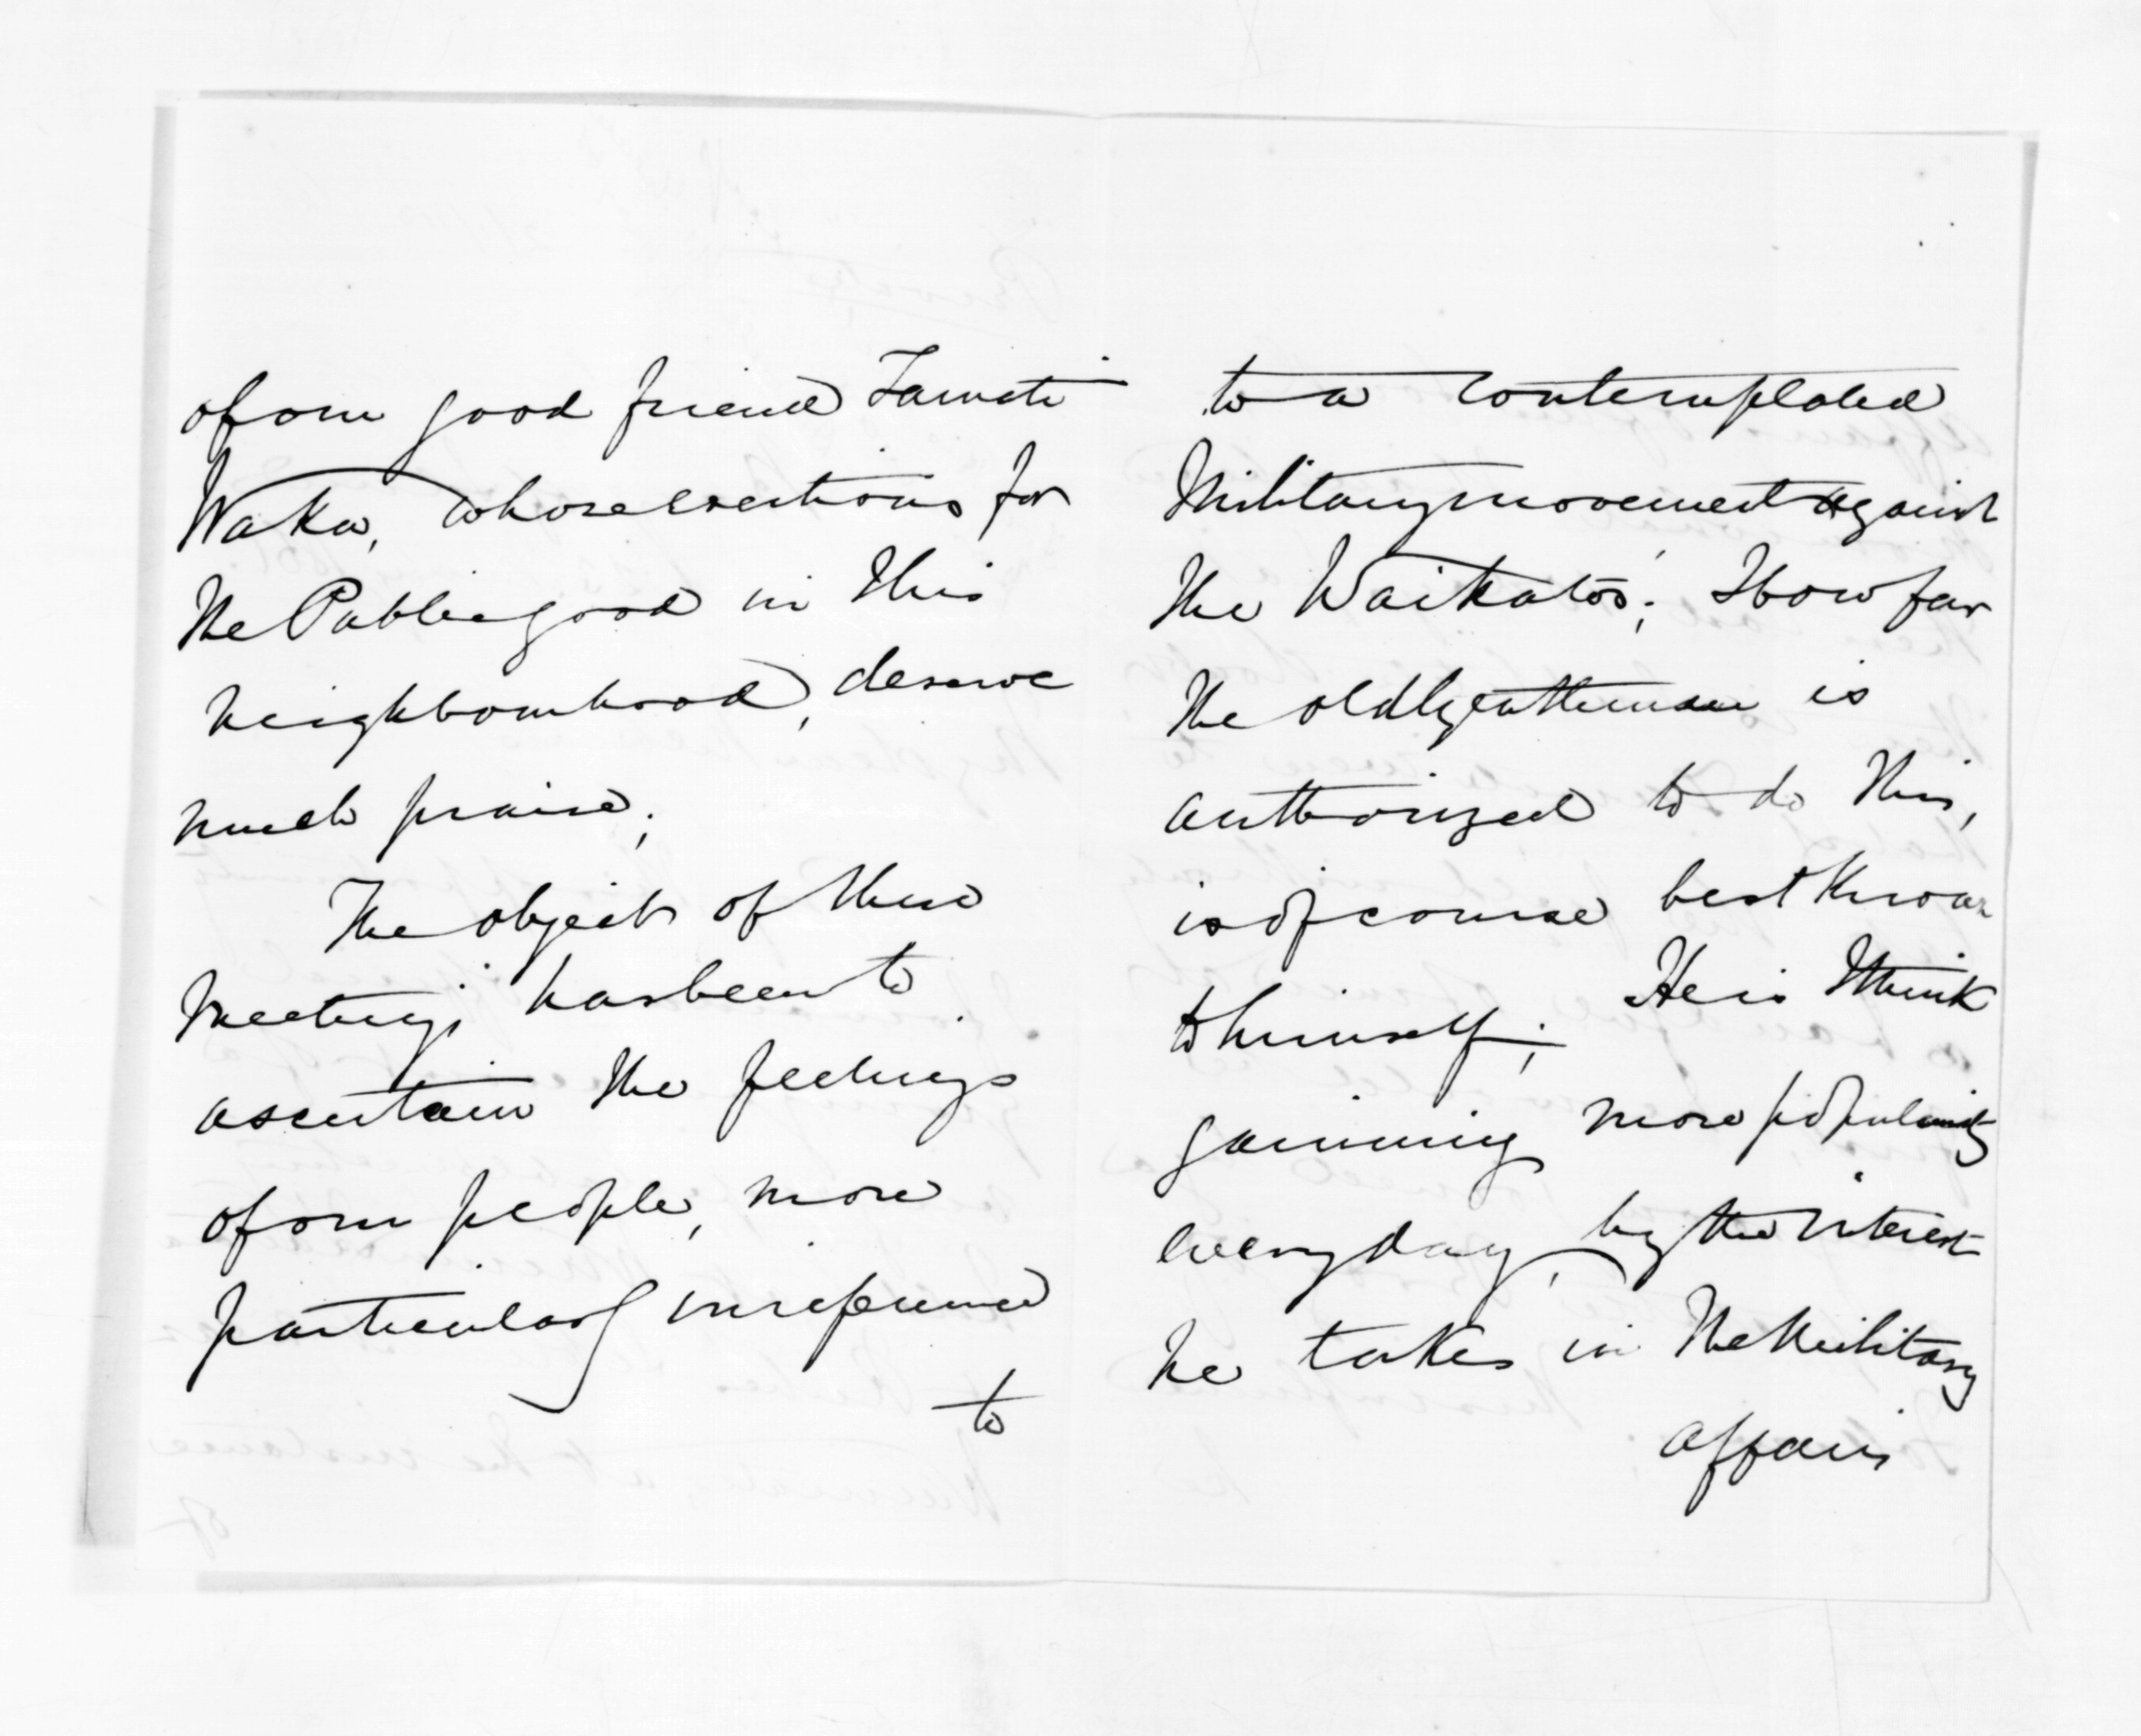 of our good friend Tamati
Waka, whose exertions for
the Public good in this
neighbourhood, deserve
much praise;
The object of these
meetings has been to
ascertain the feelings
of our people, more
particularly in reference
to
to a contemplated
Military movement against
the Waikatos; How far
the old gentleman is
authorized to do this,
is of course best known
to himself; He is I think
gaining more popularity
every day, by the interest
he takes in the Military
affairs